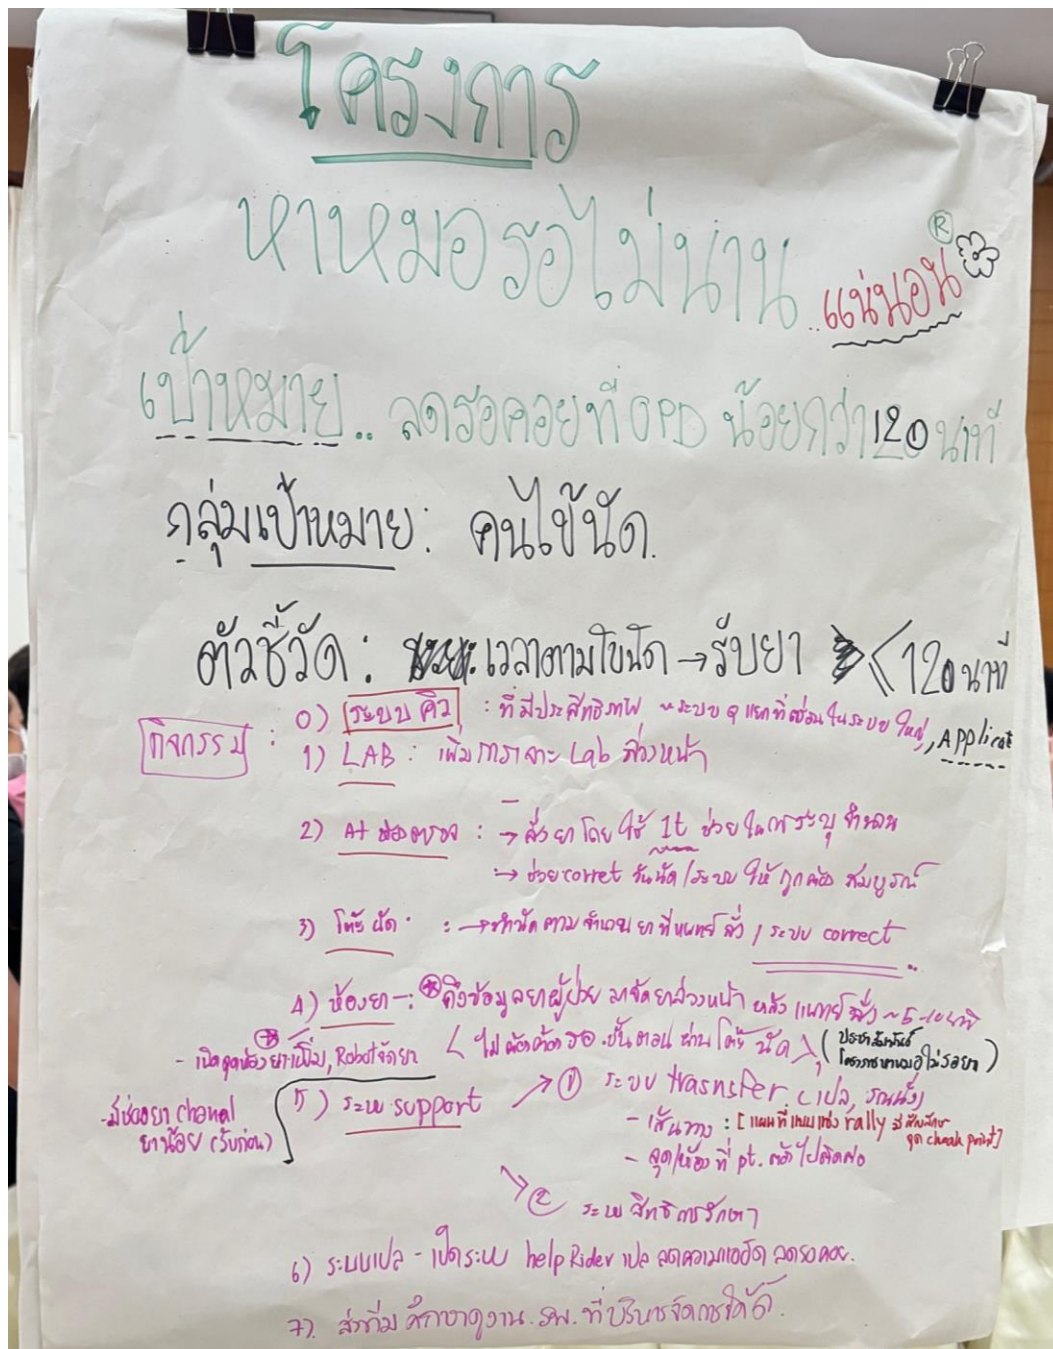 โครงการ
หาหมอรอไม่นาน ..แน่นอน ®
เป้าหมาย.. ลดรอคอยที่ OPD น้อยกว่า 120 นาที
กลุ่มเป้าหมาย: คนไข้นัด.
ตัวชี้วัด: เวลาตามใบนัด → รับยา < 120 นาที
กิจกรรม :
0) ระบบคิว : ที่มีประสิทธิภาพ ระบบ Q แยกที่ซ่อนในระบบใหญ่, Applicat
1) LAB : เพิ่มการเจาะ Lab ล่วงหน้า
2) At ห้องตรวจ : → สั่งยาโดยใช้ It ช่วยในการระบุจำนวน
→ ช่วย corret วันนัด/ระบบ ให้ถูกต้อง สมบูรณ์
3) โต๊ะนัด : → ทำนัดตามจำนวนยาที่แพทย์สั่ง / ระบบ correct
4) ห้องยา → : ดึงข้อมูลยาผู้ป่วย มาจัดยาล่วงหน้า หลังแพทย์สั่ง ~ 5-10 นาที
( ไม่ต้องรอ ขั้นตอน ผ่านโต๊ะนัด ) (ประชาสัมพันธ์
โครงการหาหมอไม่รอยา)
- เปิดจุดห้องยาเพิ่ม, Robot จัดยา
- มีช่องยา chanal
ยาน้อย (รับก่อน)
5) ระบบ support → ① ระบบ trasnsfer (เปล, รถนั่ง)
- เส้นทาง : [แผนที่แบบแข่ง rally มีสัญลักษณ์
จุด cheack point]
- จุด/ห้อง ที่ pt. ต้องไปติดต่อ
② ระบบสิทธิการรักษา
6) ระบบเปล - เปิดระบบ help Rider เปล ลดความแออัด ลดรอคอย.
7) ส่งทีมศึกษาดูงาน รพ. ที่บริหารจัดการได้ดี.